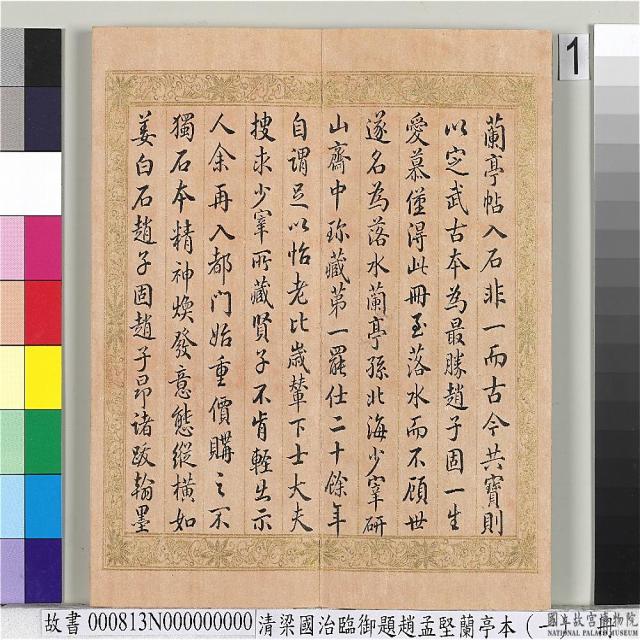 蘭亭帖入石非一而古今共寶則
以定武古本為最勝趙子固一生
愛慕僅得此冊至落水而不顧世
遂名為落水蘭亭孫北海少宰研
山齋中珎藏第一罷仕二十餘年
自謂足以怡老比歲輦下士大夫
搜求少宰所藏賢子不肯輕出示
人余再入都門始重價購之不
獨石本精神煥發意態縱橫如
姜白石趙子固趙子昂諸跋翰墨
1
故書 000813N000000000 清梁國治臨御題趙孟堅蘭亭本（一
國立故宮博物院
NATIONAL PALACE MUSEUM